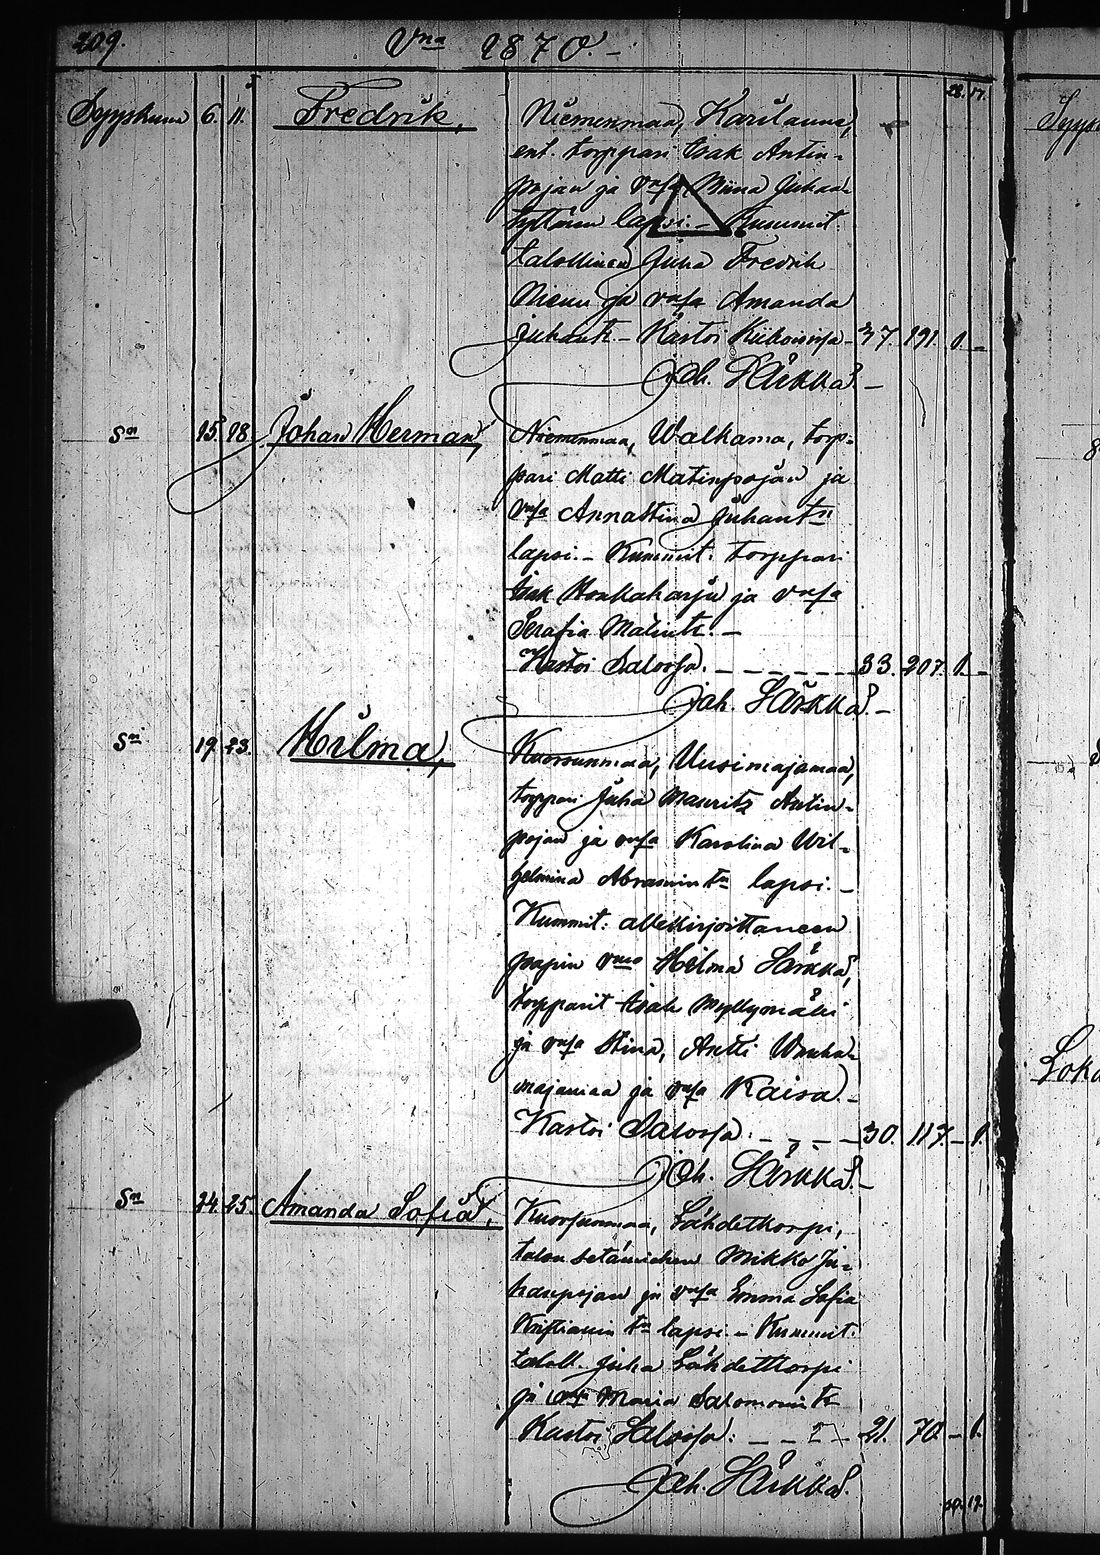 209.
Vna 1870.-
28. 17.
Syyskuun 6. 11. Fredrik, Niemenmaa, Karilanma,
ent. torppari Isak Antin-
pojan ja vsa Miina Juhan
tyttären lapsi.- Kummit:
talollinen Juha Fredrik
Niemi ja vasa Amanda
Juhantr - Kastoi Kiikoisissa - 37. 191. 1. -
Joh. Särkkä.-
Sn 15. 18. Johan Herman, Niemenmaa, Walkama, torp-
pari Matti Matinpojan ja
vsa Annastina Juhantn
lapsi.- Kummit: torppari
Isak Houkaharju ja vasa
Serafia Matintr.-
Kastoi Salossa. - - - - - - - 33. 207. 1. -
Joh. Särkkä.-
Sn 19. 23. Hilma, Kuorsunmaa, Uusimajamaa,
torppari Juha Mauritz Antin-
pojan ja vasa Karolina Wil-
helmina Abramintn lapsi.-
Kummit: allekirjoittaneen
papin vmo Hilma Särkkä,
torpparit Isak Myllymäki
ja vasa Stina, Antti Wanha-
majamaa ja vsa Kaisa.-
Kastoi Salossa: - - - - 30. 117. - 1.
Joh. Särkkä.-
Sn 24. 25. Amanda Sofia, Kuorsunmaa, Lähdetkorpi,
talon Mikko Ju-
hanpojan ja vasa Emma Sofia
Kristianin tn lapsi.- Kummit:
taloll. Juha Lähdetkorpi
ja vsa Maria Salomonintr
Kastoi Salossa: - - - - 21. 70 - 1.
Joh. Särkkä.